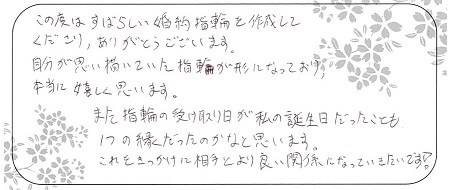 この度はすばらしい婚約指輪を作成して
くださり、ありがとうございます。
自分が思い描いていた指輪が形になっており、
本当に嬉しく思います。
また指輪の受け取り日が私の誕生日だったことも
1つの縁だったのかなと思います。
これをきっかけに相手とより良い関係になっていきたいです!